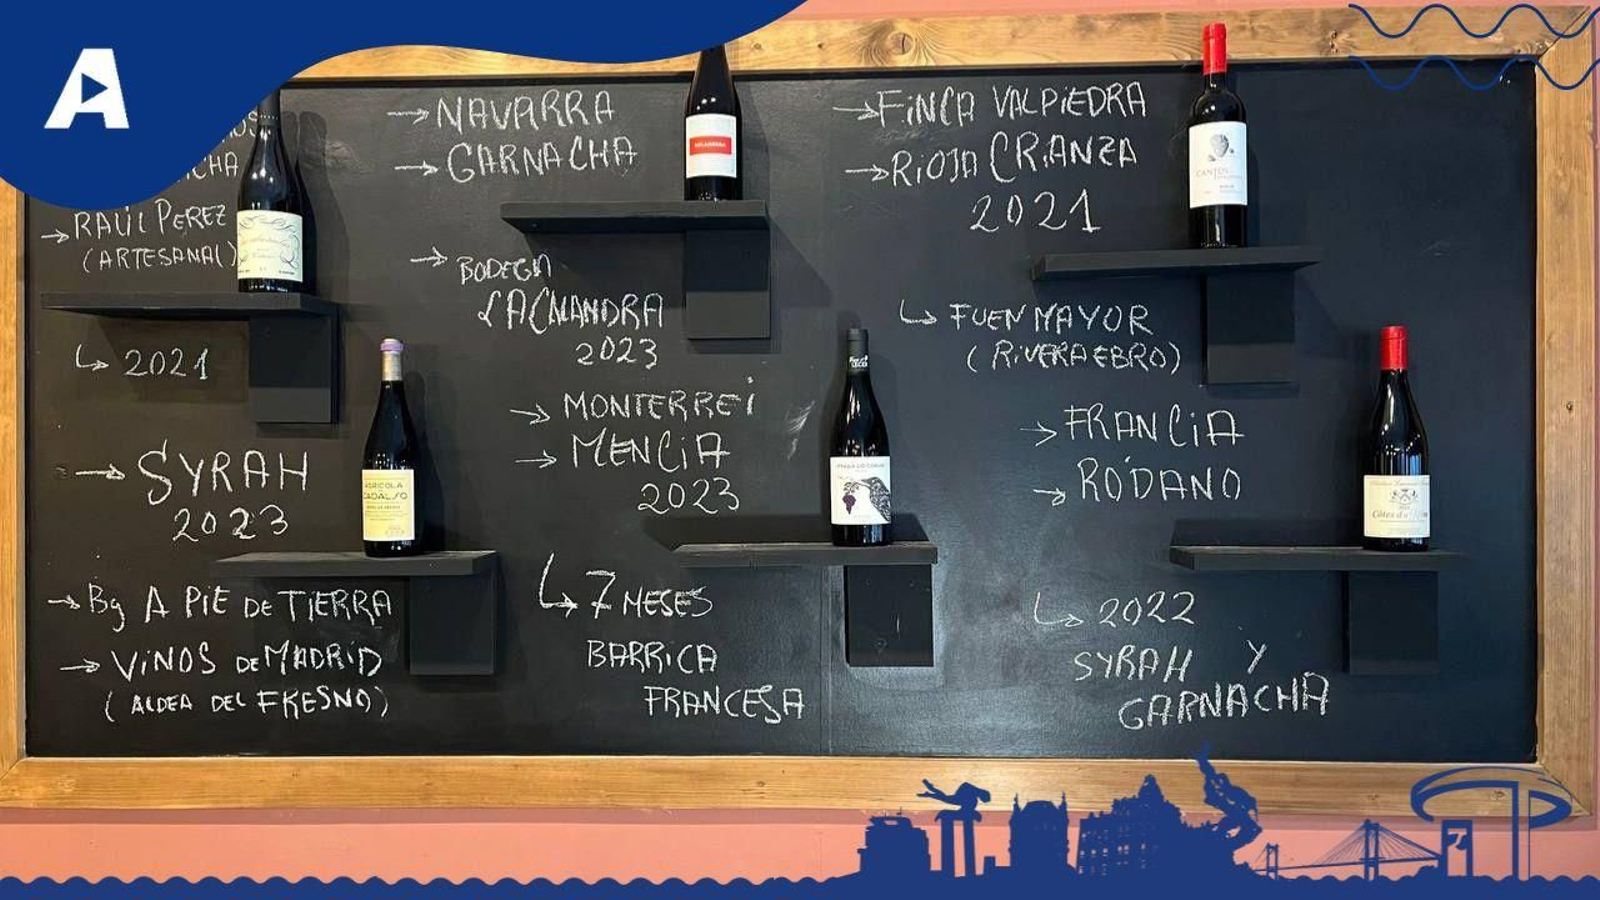 A
RAÚL PEREZ
(ARTESANAL)
2021
SYRAH
2023
Bg A PIE DE TIERRA
VINOS DE MADRID
(ALDEA DEL FRESNO)
AGRICOLA
CADALSO
NAVARRA
GARNACHA
BODEGA
2023
MONTERREI
MENCIA
2023
7 MESES
BARRICA
FRANCESA
FINCA VALPIEDRA
RIOJA CRIANZA
2021
CANTOS
FUENMAYOR
(RIVERA EBRO)
FRANCIA
RÓDANO
2022
SYRAH Y
GARNACHA